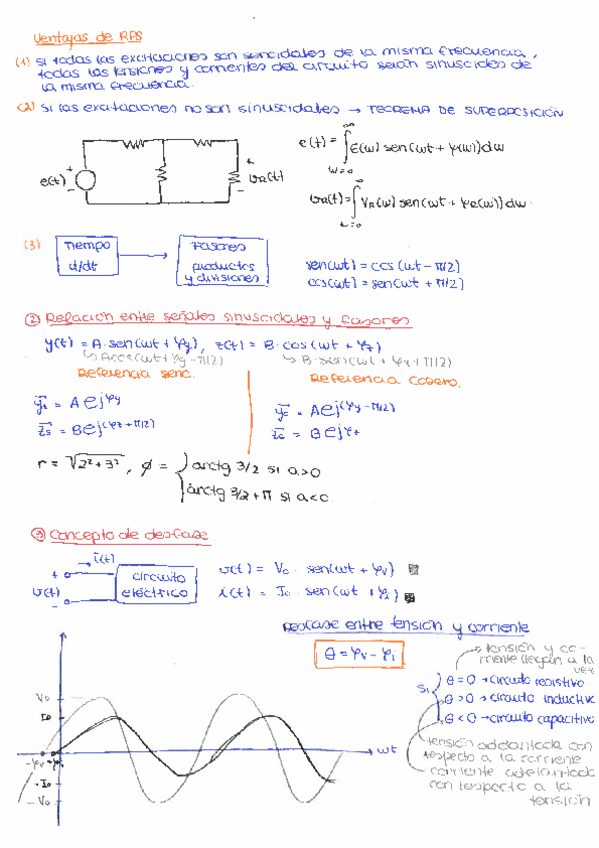 Ventajas de RPS
(1) Si todas las excitaciones son senoidales de la misma frecuencia,
todas las tensiones y corrientes del circuito serán sinusoides de
la misma frecuencia.
(2) Si las excitaciones no son sinusoidales → TEOREMA DE SUPERPOSICIÓN
e(t) = ∫ E(w) sen(wt + φ(w))dw
∞
w=0
e(t)
+
−
+
vR(t)
−
vR(t) = ∫ VR(w) sen(wt + φR(w))dw
∞
w=0
(3) Tiempo
d/dt
Fasores
productos
y divisiones
sen(wt) = cos(wt − π/2)
cos(wt) = sen(wt + π/2)
② Relación entre señales sinusoidales y fasores
y(t) = A·sen(wt + φy), z(t) = B·cos(wt + φz)
↳ A cos(wt + φy − π/2)
↳ B·sen(wt + φz + π/2)
Referencia seno.
Referencia coseno.
ȳs = A e j φy
z̄s = B e j(φz + π/2)
ȳc = A e j(φy − π/2)
z̄c = B e j φz
r = √2² + 3², ϕ = { arctg 3/2 si a>0
arctg 3/2 + π si a<0.
③ Concepto de desfase
i(t)
+
v(t)
−
circuito
eléctrico
v(t) = Vo · sen(wt + φv)
i(t) = Io · sen(wt + φi)
Desfase entre tensión y corriente
θ = φv − φi
tensión y co-
rriente llegan a la
vez
Si
θ = 0 → circuito resistivo
θ > 0 → circuito inductivo
θ < 0 → circuito capacitivo
tensión adelantada con
respecto a la corriente
corriente adelantada
con respecto a la
tensión
Vo
Io
−φv −φi
wt
−Io
−Vo